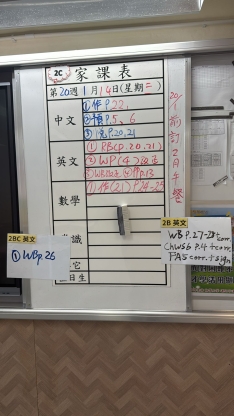 2C 家課表
第20週1月14日(星期二)
中文
①作P.22,
②補P.5, 6
③完P.20,21
英文
① RBCP.20,21)
② WP(4)改正
數學
①作(21) P.24-25
常識
其它
生日
20/1前訂2月午餐
2BC 英文
① WBp26
2B 英文
WB P.27-28+corr.
ChWS6 P.4+corr.
PA5 corr.+sign